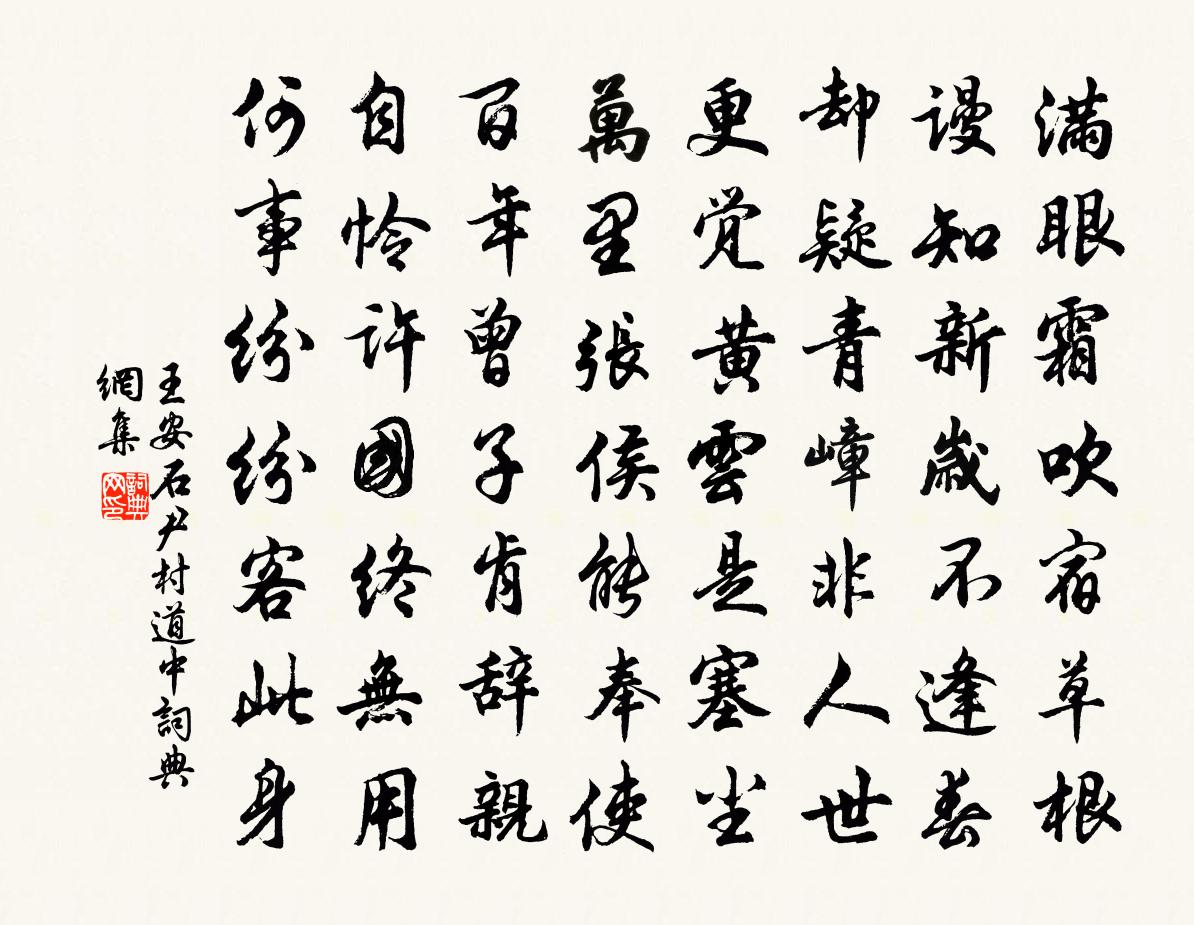 滿眼霜吹宿草根
謾知新歲不逢春
却疑青嶂非人世
更覚黃雲是塞尘
萬里張侯能奉使
百年曾子肯辞親
自怜許國終無用
何事紛紛客此身
王安石尹村道中詞典
網集
詞典
网印